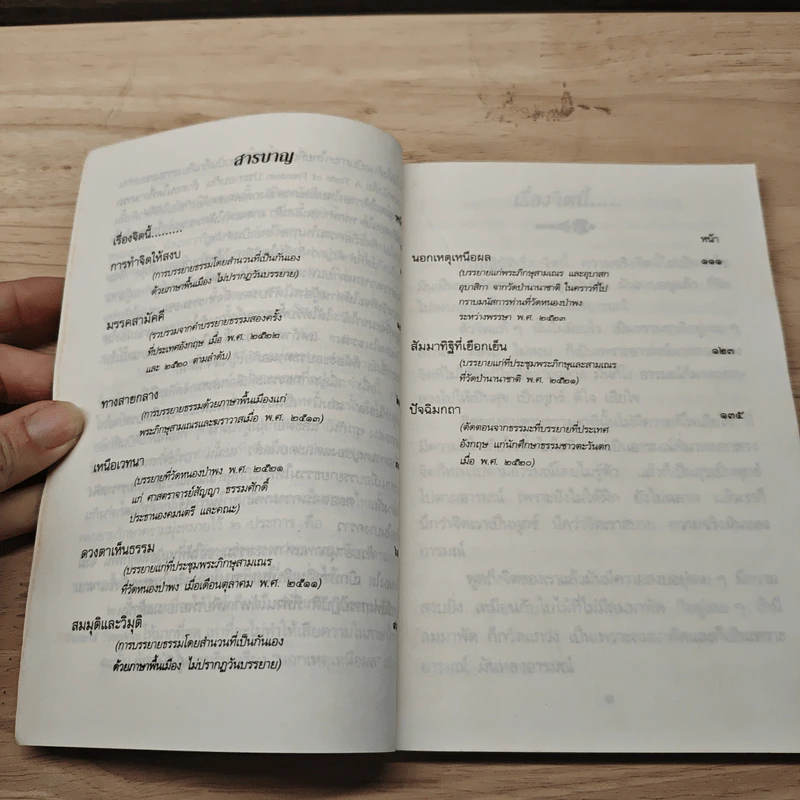 สารบาญ
เรื่องจิตนี้.........
การทำจิตให้สงบ
(การบรรยายธรรมโดยสำนวนที่เป็นกันเอง
ด้วยภาษาพื้นเมือง ไม่ปรากฏวันบรรยาย)
มรรคสามัคคี
(รวบรวมจากคำบรรยายธรรมสองครั้ง
ที่ประเทศอังกฤษ เมื่อ พ.ศ. ๒๕๒๒
และ ๒๕๒๐ ตามลำดับ)
ทางสายกลาง
(การบรรยายธรรมด้วยภาษาพื้นเมืองแก่
พระภิกษุสามเณรและฆราวาสเมื่อ พ.ศ. ๒๕๑๓)
เหนือเวทนา
(บรรยายที่วัดหนองป่าพง พ.ศ. ๒๕๒๑
แก่ ศาสตราจารย์สัญญา ธรรมศักดิ์
ประธานองคมนตรี และคณะ)
ดวงตาเห็นธรรม
(บรรยายแก่ที่ประชุมพระภิกษุสามเณร
ที่วัดหนองป่าพง เมื่อเดือนตุลาคม พ.ศ. ๒๕๑๑)
สมมุติและวิมุติ
(การบรรยายธรรมโดยสำนวนที่เป็นกันเอง
ด้วยภาษาพื้นเมือง ไม่ปรากฏวันบรรยาย)
หน้า
นอกเหตุเหนือผล ๑๑๑
(บรรยายแก่พระภิกษุสามเณร และอุบาสก
อุบาสิกา จากวัดป่านานาชาติ ในคราวที่ไป
กราบมนัสการท่านที่วัดหนองป่าพง
ระหว่างพรรษา พ.ศ. ๒๕๒๓
สัมมาทิฐิที่เยือกเย็น ๑๒๓
(บรรยายแก่ที่ประชุมพระภิกษุและสามเณร
ที่วัดป่านานาชาติ พ.ศ. ๒๕๒๑)
ปัจฉิมกถา ๑๓๕
(ตัดตอนจากธรรมะที่บรรยายที่ประเทศ
อังกฤษ แก่นักศึกษาธรรมชาวตะวันตก
เมื่อ พ.ศ. ๒๕๒๐)